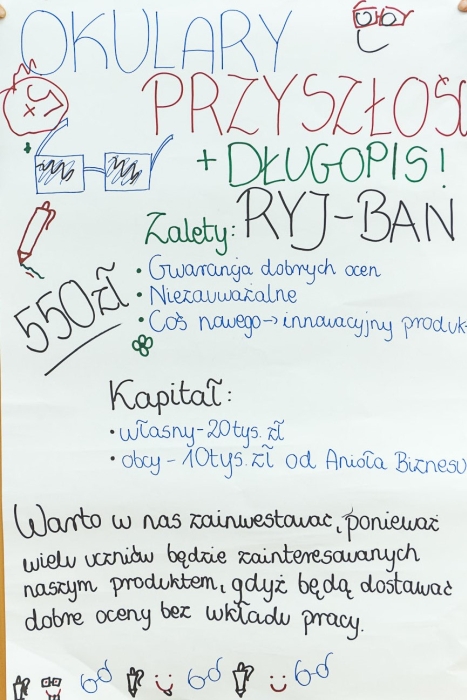 OKULARY
PRZYSZŁOŚC
+ DŁUGOPIS!
RYJ-BAN
Zalety:
550zł
• Gwarancja dobrych ocen
• Niezauważalne
• Coś nowego → innowacyjny produk
Kapitał:
• własny - 20 tys. zł
• obcy - 10 tys. zł od Anioła Biznesu
Warto w nas zainwestować, ponieważ
wielu uczniów będzie zainteresowanych
naszym produktem, gdyż będą dostawać
dobre oceny bez wkładu pracy.